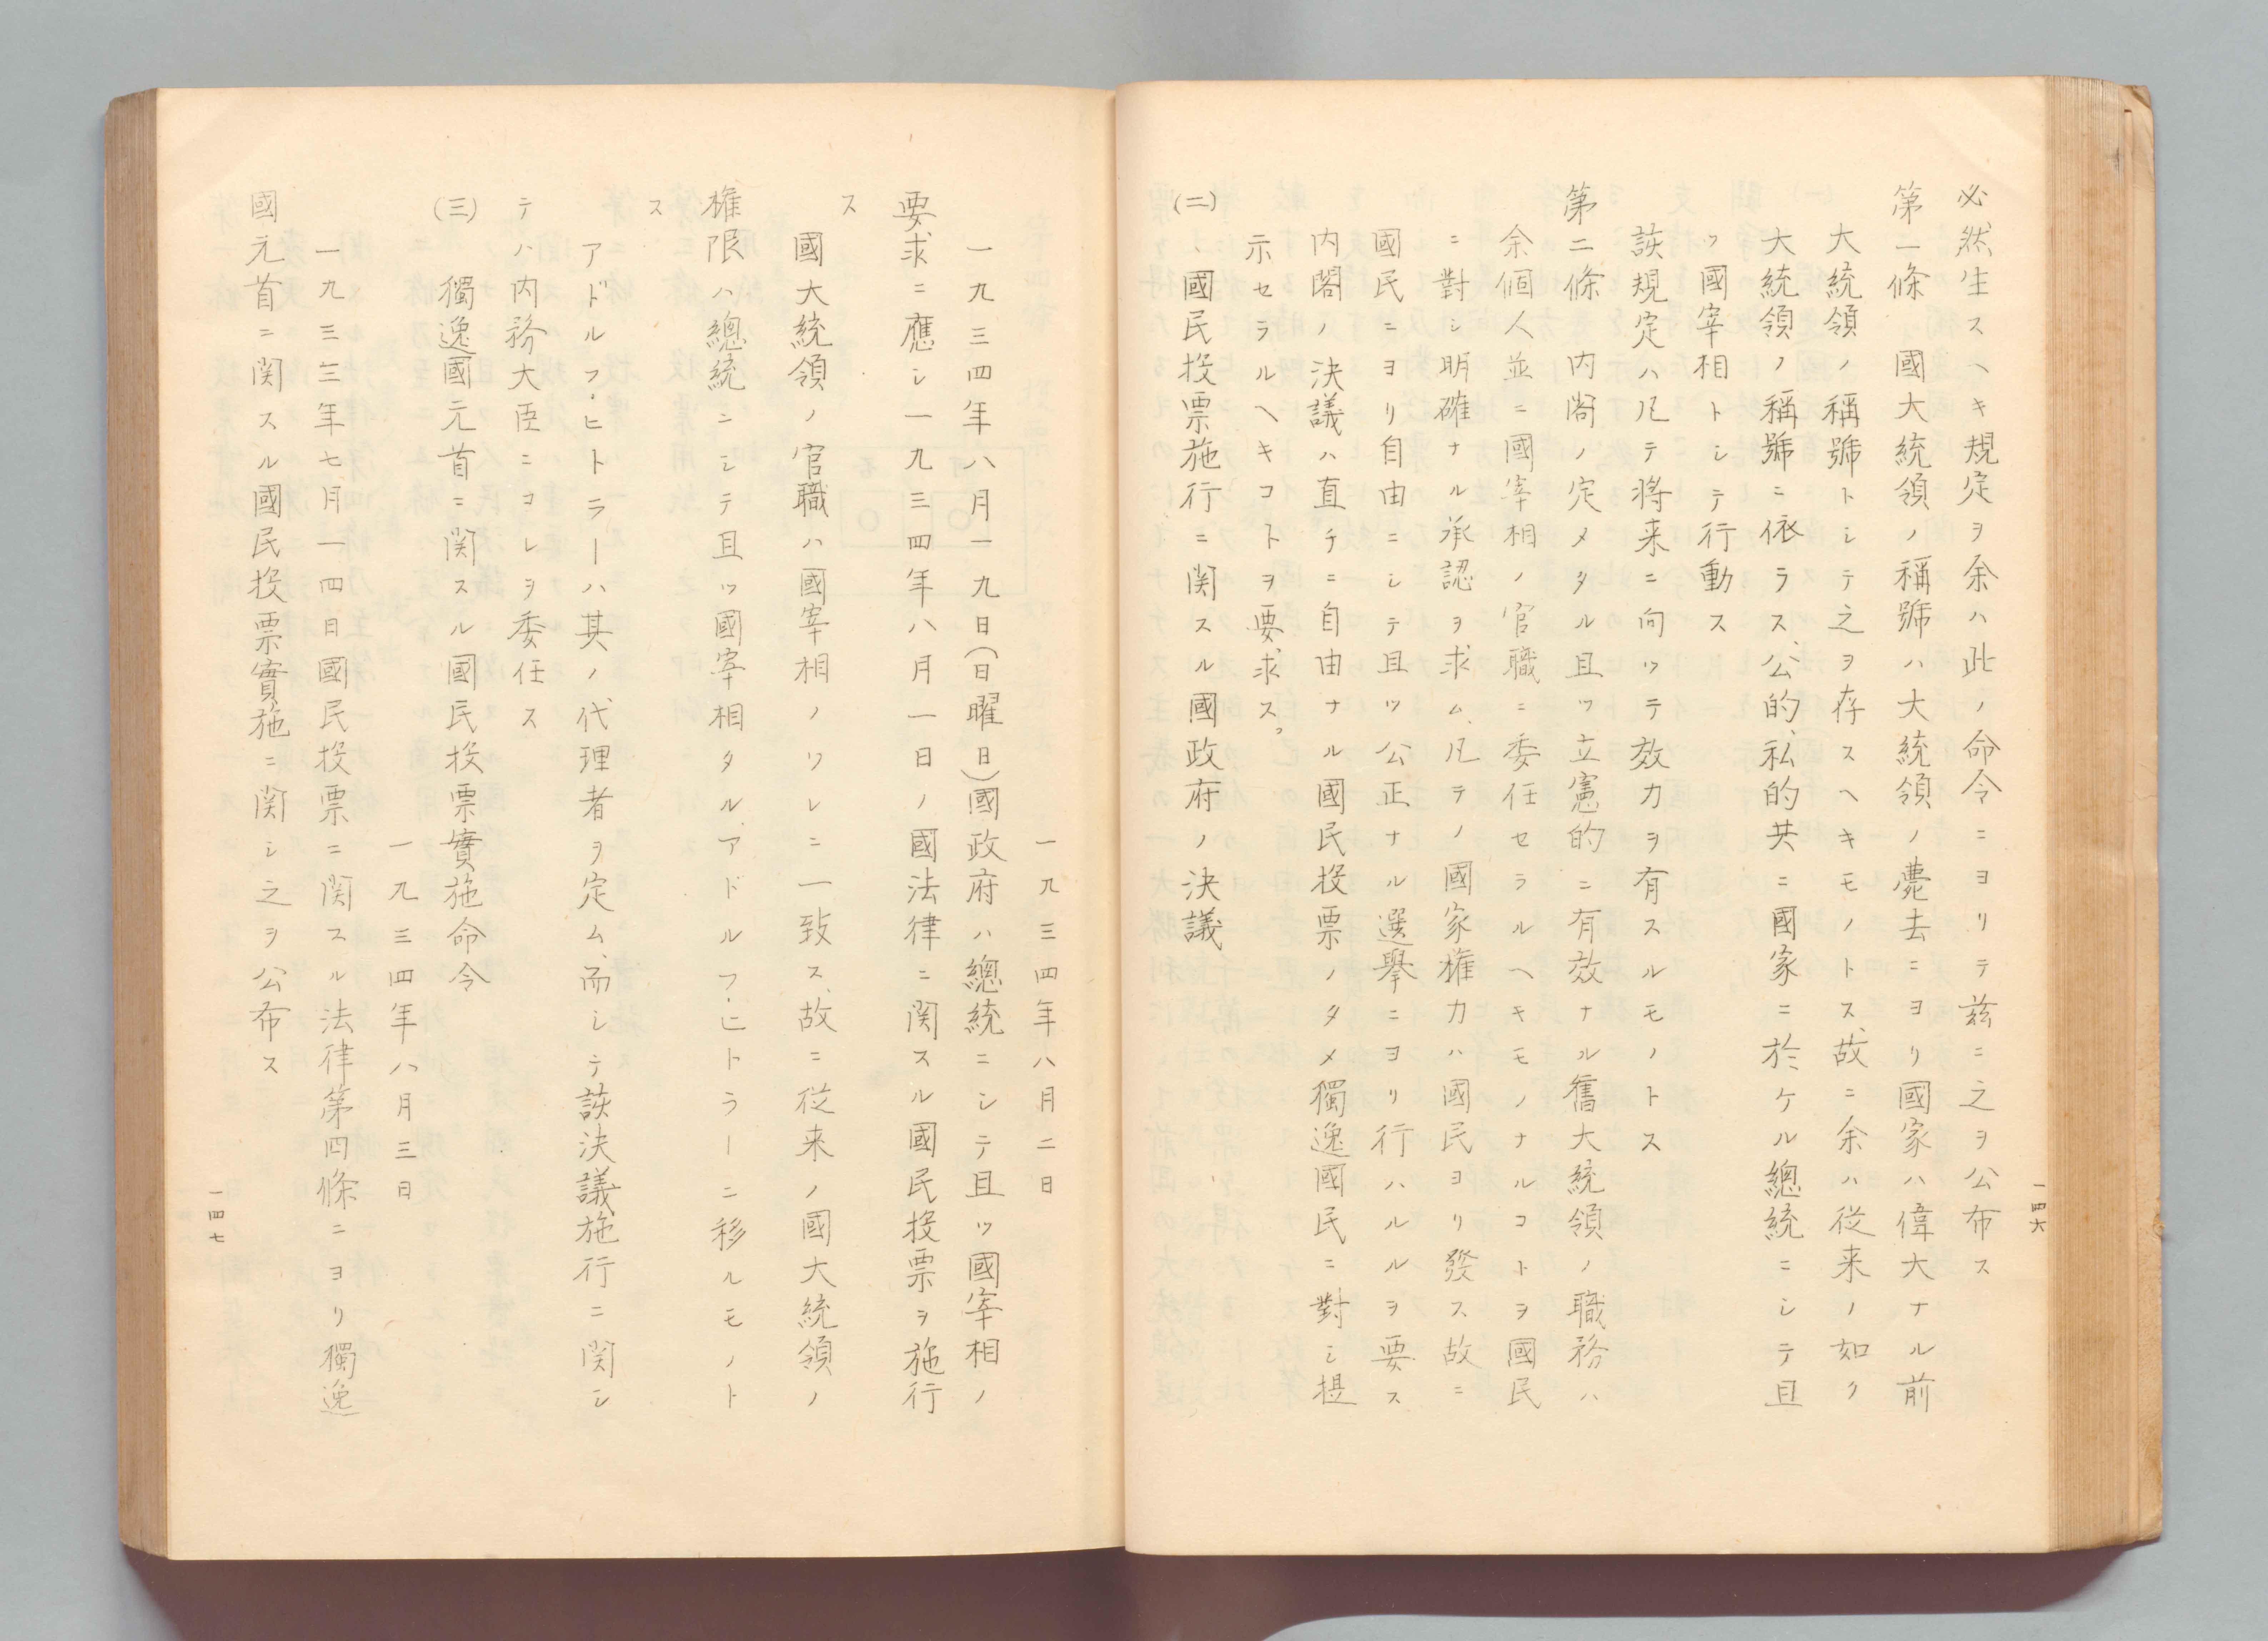 一四六
必然生スヘキ規定ヲ余ハ此ノ命令ニヨリテ茲ニ之ヲ公布ス
第一條 國大統領ノ稱號ハ大統領ノ薨去ニヨリ國家ハ偉大ナル前
大統領ノ稱號トシテ之ヲ存スヘキモノトス、故ニ余ハ従来ノ如ク
大統領ノ稱號ニ依ラス、公的、私的共ニ國家ニ於ケル總統ニシテ且
ツ國宰相トシテ行動ス
該規定ハ凡テ将来ニ向ツテ效力ヲ有スルモノトス
第二條 内閣ノ定メタル且ツ立憲的ニ有效ナル舊大統領ノ職務ハ
余個人並ニ國宰相ノ官職ニ委任セラルヘキモノナルコトヲ國民
ニ對シ明確ナル承認ヲ求ム、凡テノ國家権力ハ國民ヨリ發ス故ニ
國民ニヨリ自由ニシテ且ツ公正ナル選擧ニヨリ行ハルルヲ要ス
内閣ノ決議ハ直チニ自由ナル國民投票ノタメ獨逸國民ニ對シ提
示セラルヘキコトヲ要求ス。
(二)、國民投票施行ニ関スル國政府ノ決議
一九三四年八月二日
一九三四年八月一九日(日曜日)國政府ハ總統ニシテ且ツ國宰相ノ
要求ニ應シ一九三四年八月一日ノ國法律ニ関スル國民投票ヲ施行
ス
國大統領ノ官職ハ國宰相ノソレニ一致ス、故ニ従来ノ國大統領ノ
権限ハ總統ニシテ且ツ國宰相タル、アドルフ・ヒトラーニ移ルモノト
ス
アドルフ・ヒトラーハ其ノ代理者ヲ定ム、而シテ該決議施行ニ関シ
テハ内務大臣ニコレヲ委任ス
(三) 獨逸國元首ニ関スル國民投票實施命令
一九三四年八月三日
一九三三年七月一四日國民投票ニ関スル法律第四條ニヨリ獨逸
國元首ニ関スル國民投票實施ニ関シ之ヲ公布ス
一四七